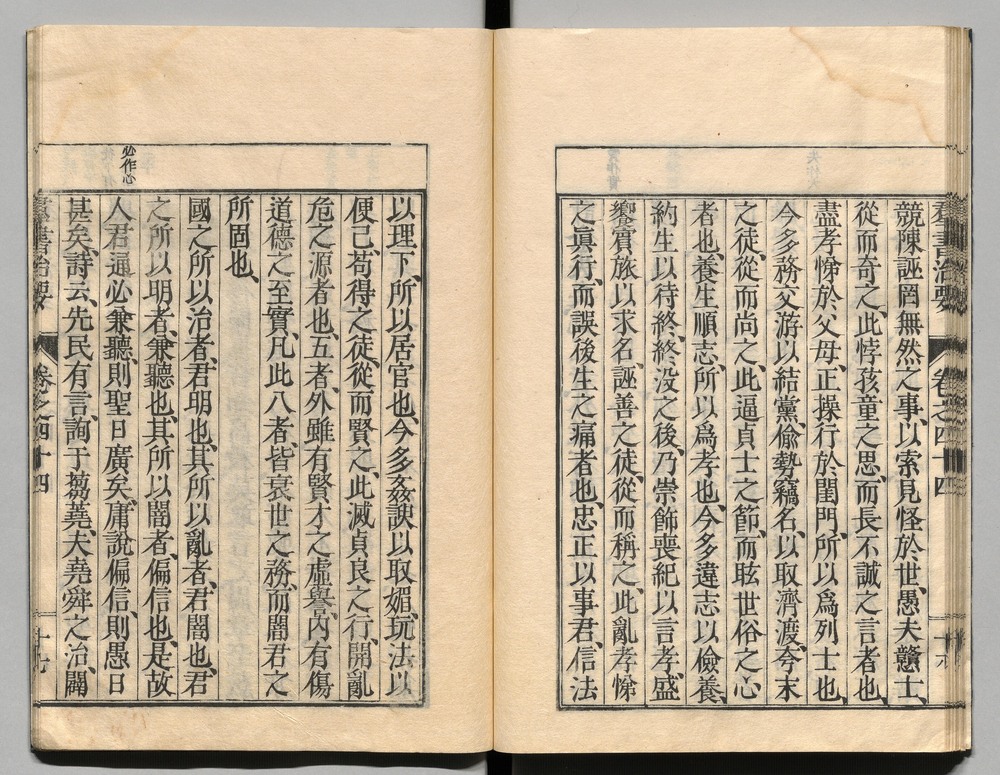 羣書治要 卷之四十四 十六
競陳誣罔無然之事、以索見怪於世、愚夫戇士、
從而奇之、此悖孩童之思、而長不誠之言者也、
盡孝悌於父母、正操行於閨門、所以爲列士也、
今多務交游以結黨、偷勢竊名、以取濟渡、夸末
之徒、從而尚之、此逼貞士之節、而眩世俗之心
者也、養生順志、所以爲孝也、今多違志以儉養、
約生以待終、終没之後、乃崇飾喪紀以言孝、盛
饗賓旅以求名、誣善之徒、從而稱之、此亂孝悌
之眞行、而誤後生之痛者也、忠正以事君、信法
以理下、所以居官也、今多姦諛以取媚、玩法以
便己、苟得之徒、從而賢之、此滅貞良之行、開亂
危之源者也、五者、外雖有賢才之虛譽、內有傷
道德之至實、凡此八者、皆衰世之務、而闇君之
所固也、
國之所以治者、君明也、其所以亂者、君闇也、君
之所以明者、兼聽也、其所以闇者、偏信也、是故
人君通必兼聽、則聖日廣矣、庸說偏信、則愚日
甚矣、詩云、先民有言、詢于芻蕘、夫堯舜之治、闢
必作心
羣書治要 卷之四十四 十七